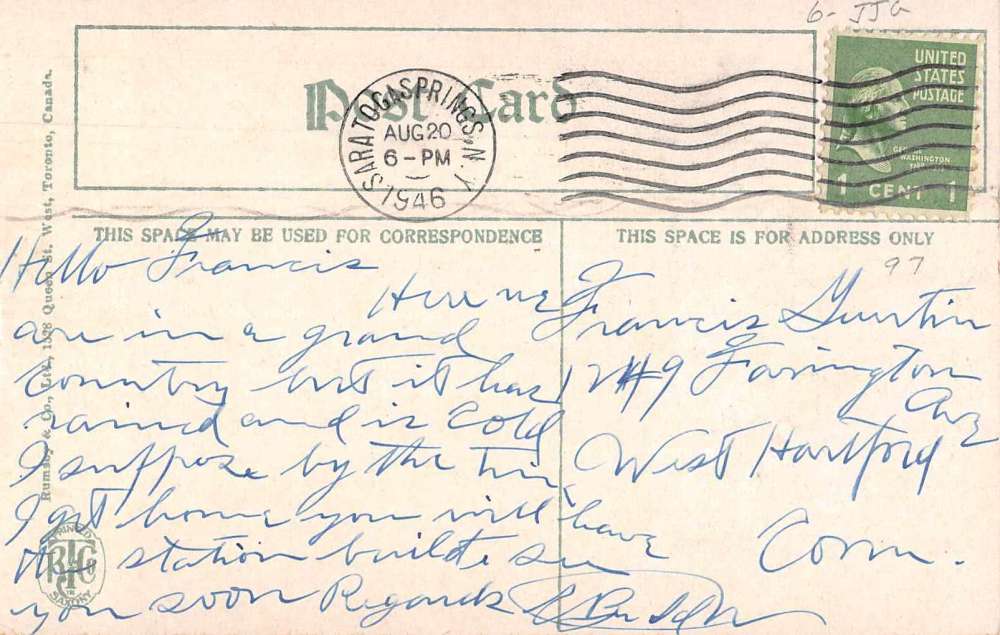 6- JJG
Post Card
SARATOGA SPRINGS, N.Y.
AUG 20
6-PM
1946
UNITED
STATES
POSTAGE
GEORGE
WASHINGTON
1 CENT 1
THIS SPACE MAY BE USED FOR CORRESPONDENCE
THIS SPACE IS FOR ADDRESS ONLY
97
Hello Francis
Here we
are in a grand
Country but it has
rained and is cold
I suppose by the time
I get home you will have
the station built see
you soon Regards
Francis
Farmington
Ave
West Hartford
Conn.
Rumsey & Co., Ltd., 1528 Queen St. West, Toronto, Canada.
PRINTED
SAXONY